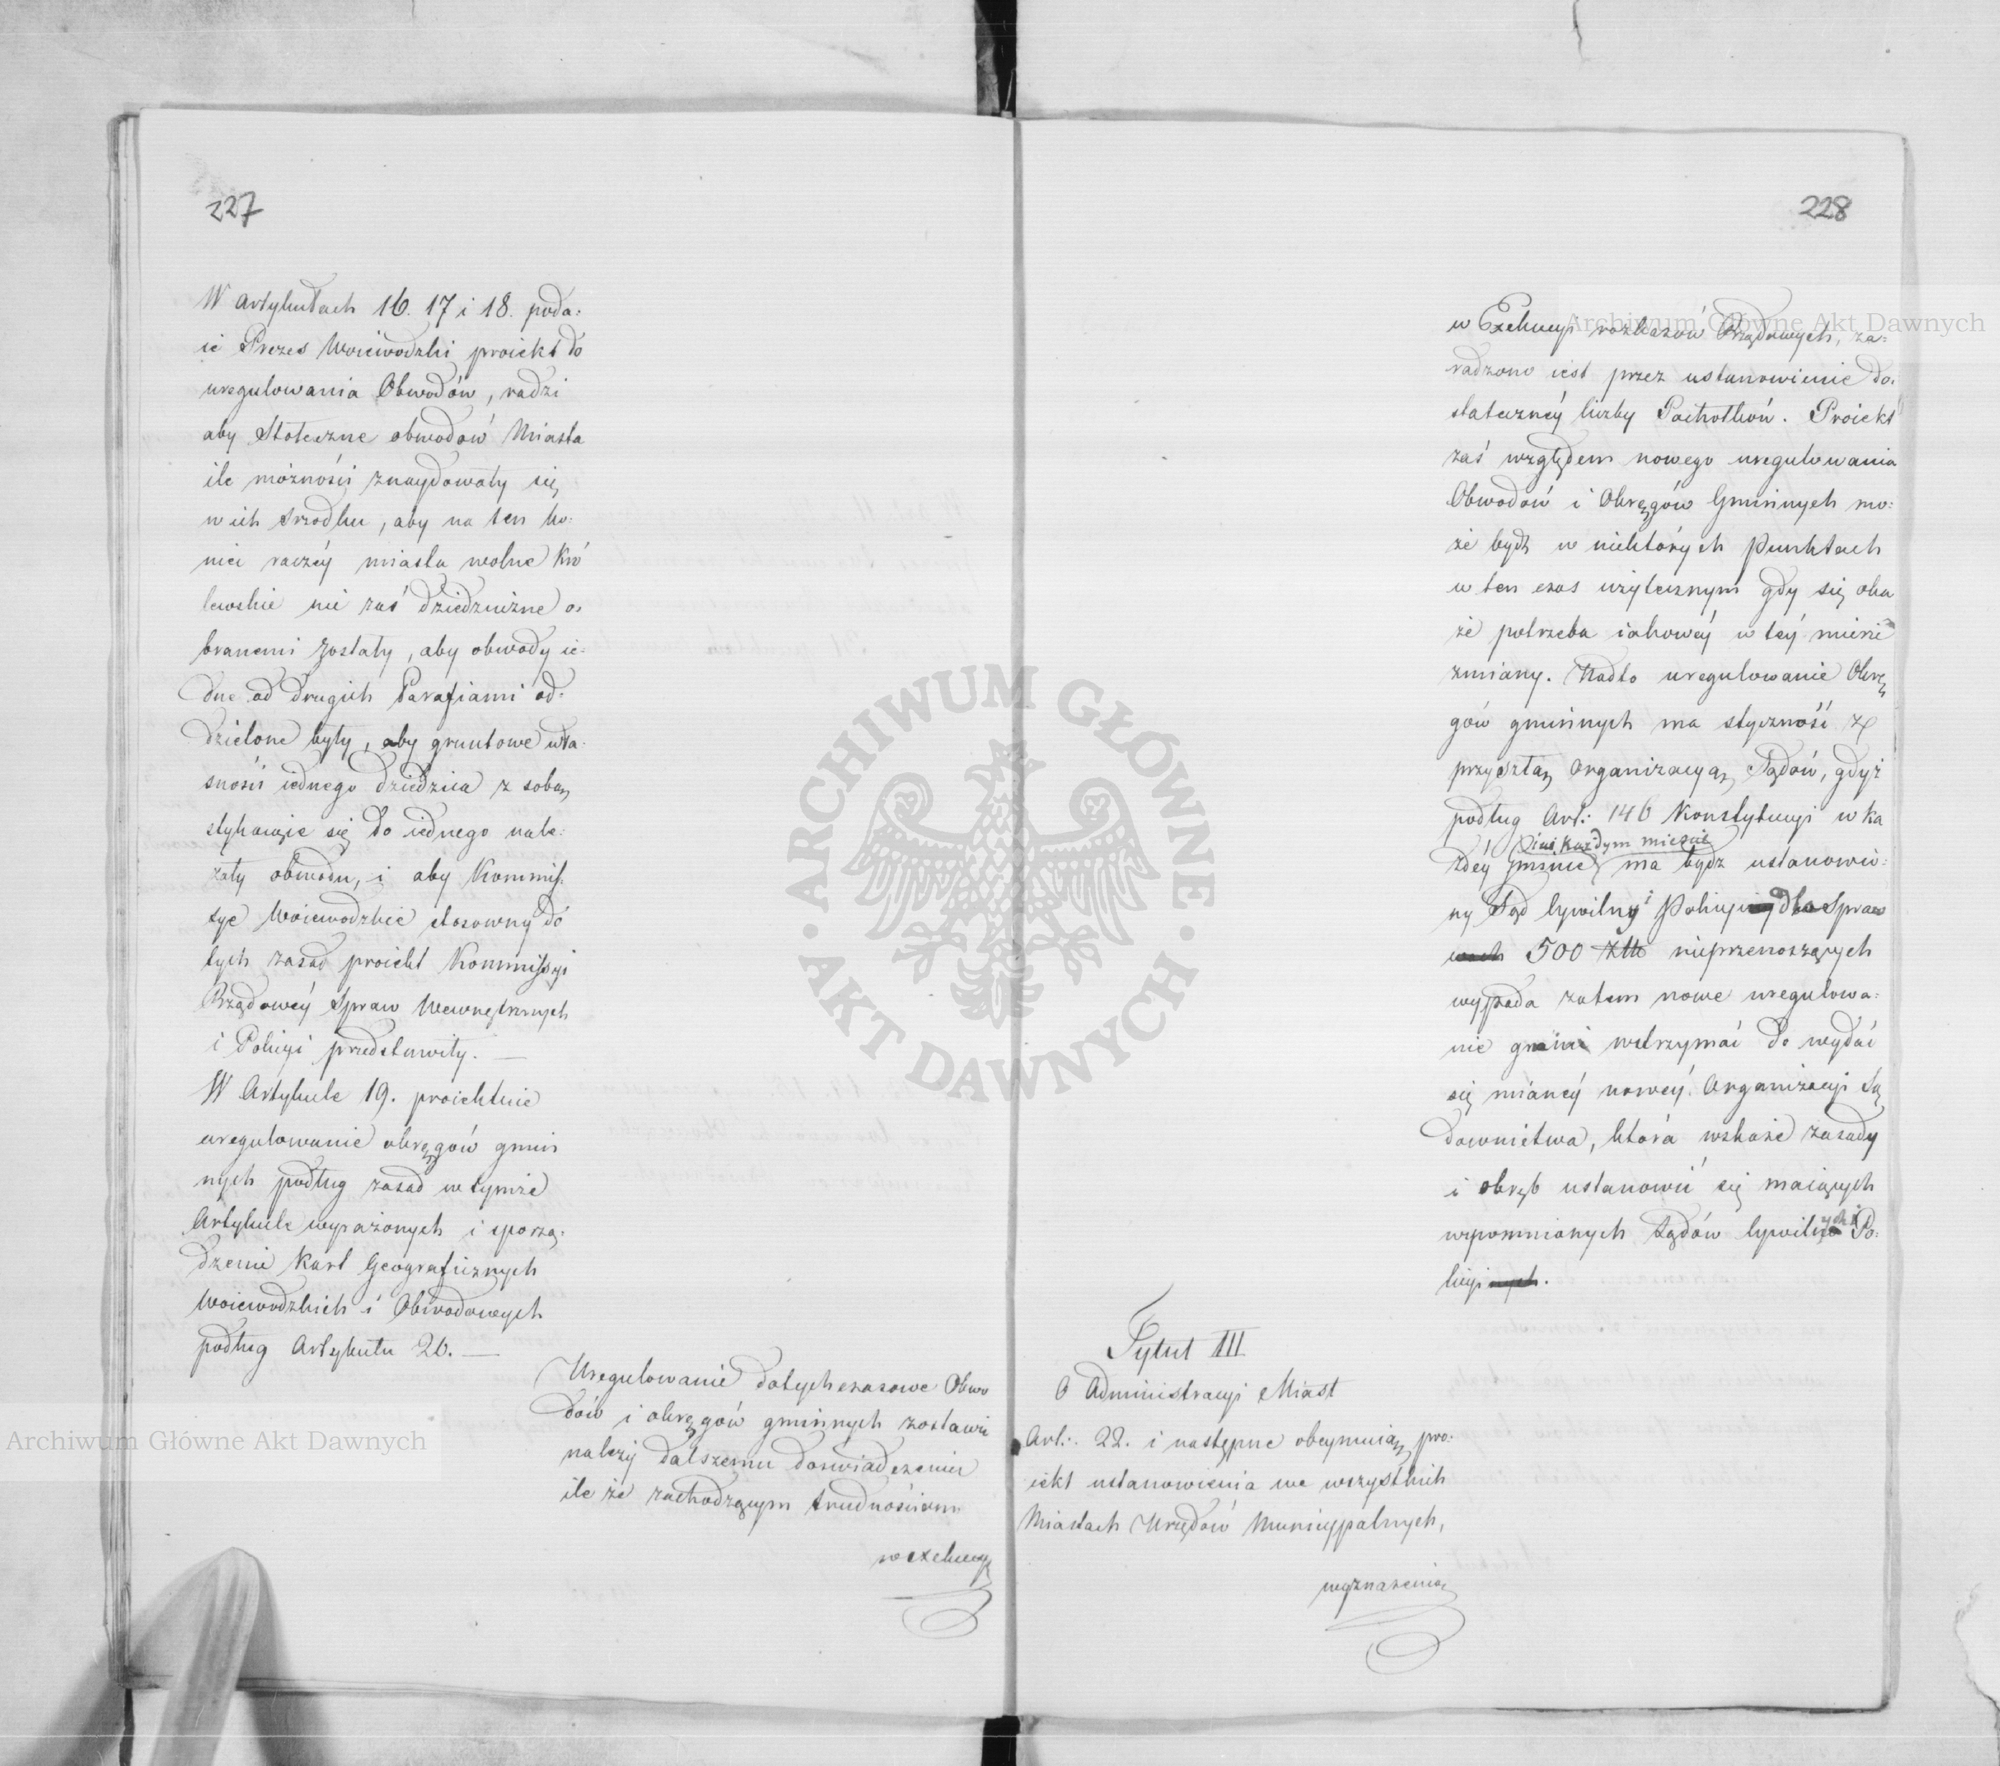 227
W Artykułach 16. 17 i 18. poda-
ie Prezes Woiewodzki proiekt do
uregulowania Obwodów, radzi
aby Stołeczne obwodów Miasta
ile możności znaydowały się
w ich srzodku, aby na ten ko-
niec raczéy miasta wolne Kró
lewskie nie zaś dziedziczne o-
branemi zostały, aby obwody ie-
dne od drugich Parafiami od-
dzielone były, aby gruntowe wła-
sności iednego dziedzica z sobą
stykaiące się do iednego nale-
żały obwodu, i aby Kommis-
sye Woiewodzkie stosowny do
tych zasad proiekt Kommissyi
Rządowéy Spraw Wewnętrznych
i Policyi przedstawiły. —
W Artykule 19. proiektuie
uregulowanie obręgów gmin
nych podług zasad w tymże
Artykule wyrażonych i sporzą-
dzenie Kart Geograficznych
Woiewodzkich i Obwodowych
podług Artykułu 20. —
Uregulowanie dotychczasowe Obwo
dów i obręgów gminnych zostawić
należy dalszemu doświadczeniu
ile że zachodzącym trudnościom
w exekucyi
228
w Exekucyi rozkazów Rządowych, za-
radzono iest przez ustanowienie do-
statecznéy liczby Pachołków. Proiekt
zaś względem nowego uregulowania
Obwodów i Obręgów Gminnych mo-
że bydź w niektórych punktach
w ten czas użytecznym gdy się oka
że potrzeba iakowéy w téy mierze
zmiany. Nadto uregulowanie Obrę
gów gminnych ma styczność z
przyszłą Organizacyą Sądów, gdyż
podług Art: 146 Konstytucyi w ka
i w każdym mieście
żdéy gminie ma bydź ustanowio-
ny Sąd Cywilny i Policyiny dla Spraw
wach 500 Złt nieprzenoszących
wypada zatem nowe uregulowa-
nie gmin wstrzymać do wydać
się maiącéy nowéy Organizacyi Są
downictwa, która wskaże zasady
i obręb ustanowić się maiących
wspomnionych Sądów Cywilnych i Po-
licyi nych.
Tytuł III
O Administracyi Miast
Art: 22. i następne obeymuią pro-
iekt ustanowienia we wszystkich
Miastach Urzędów Municypalnych,
wyznaczenia
ARCHIWUM GŁÓWNE · AKT DAWNYCH ·
Archiwum Główne Akt Dawnych
Archiwum Główne Akt Dawnych